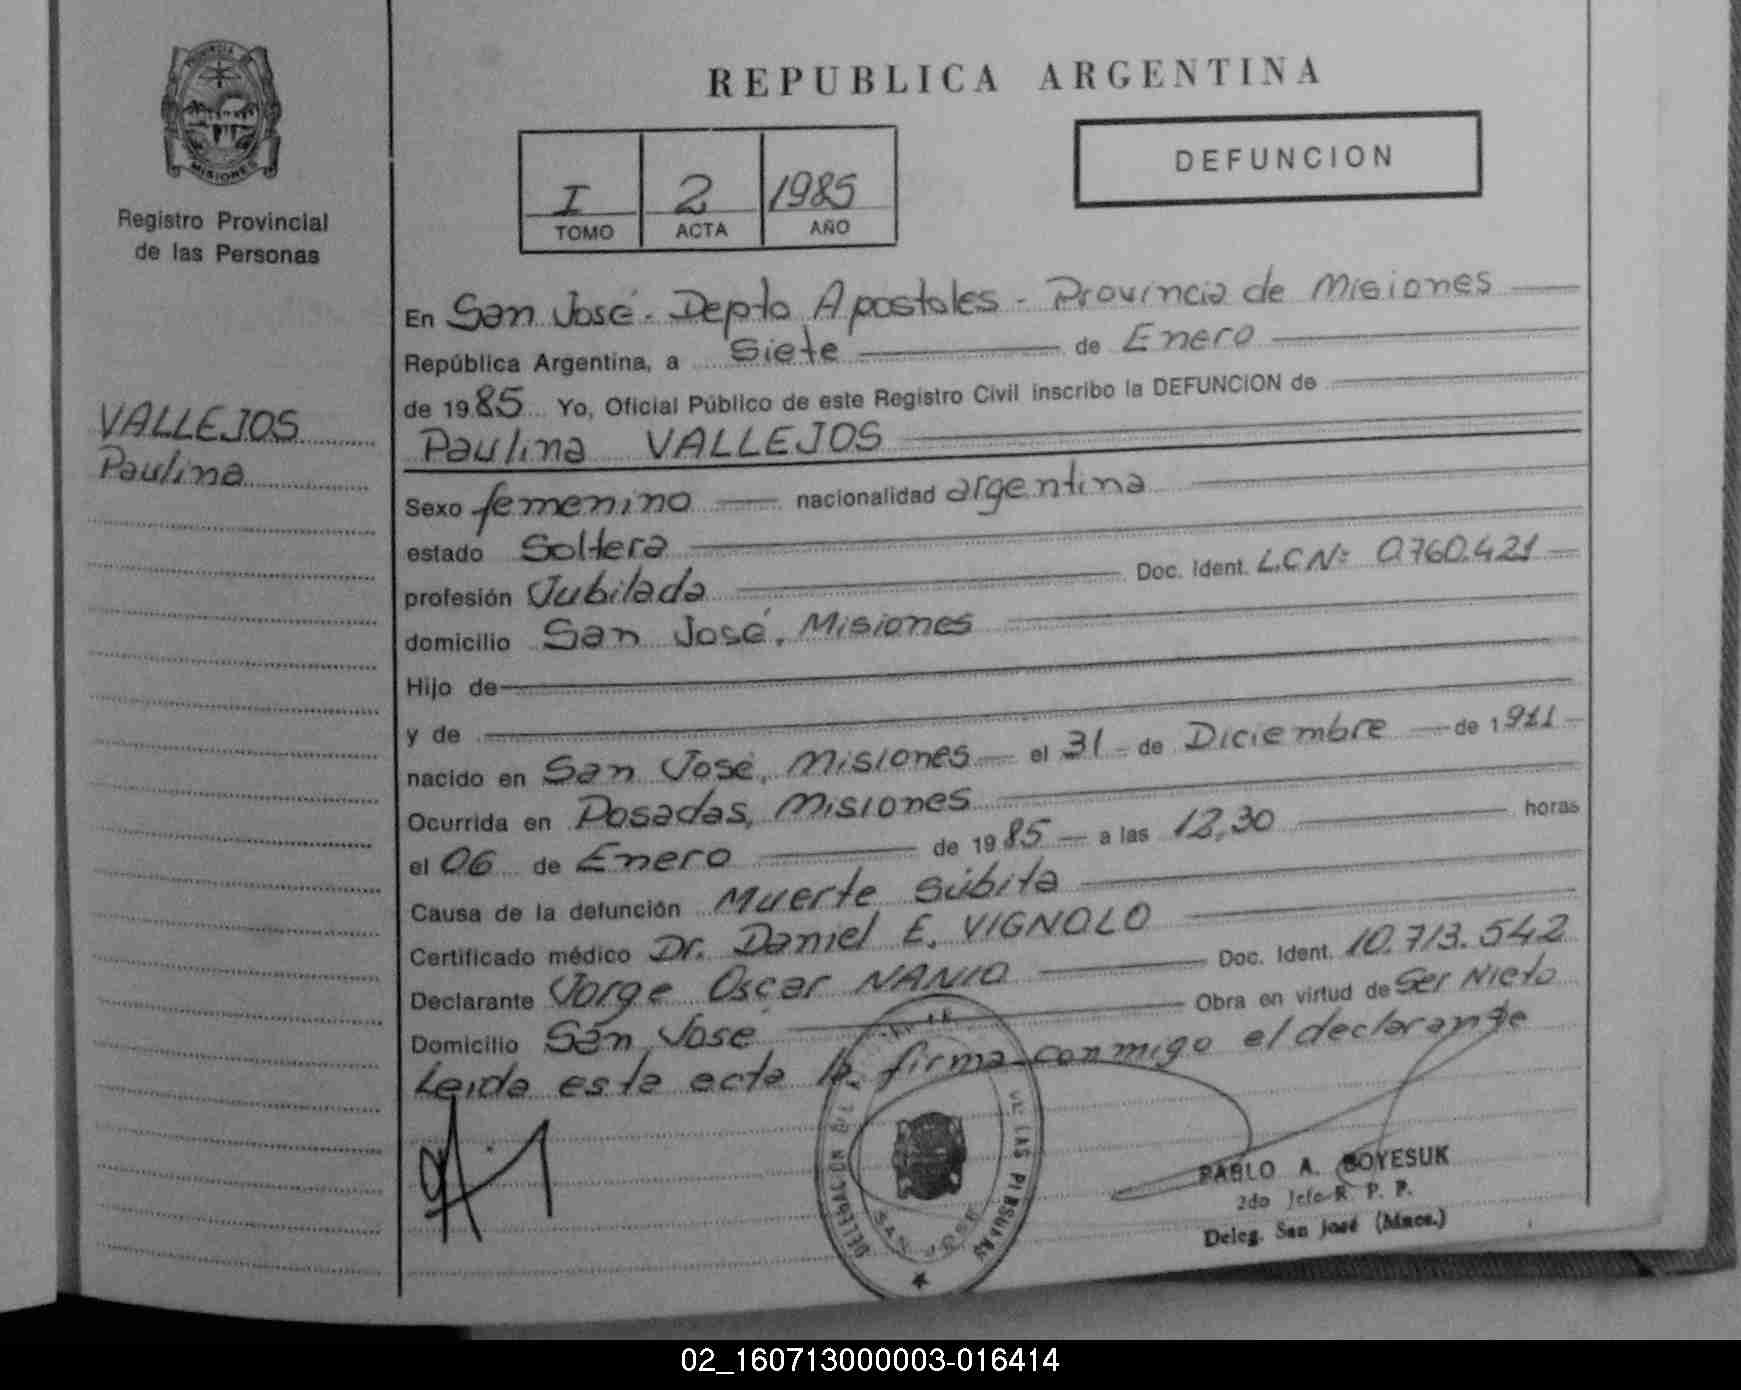 PROVINCIA
MISIONES
Registro Provincial
de las Personas
VALLEJOS
Paulina
REPUBLICA ARGENTINA
I 2 1985
TOMO ACTA AÑO
DEFUNCION
En San José. Depto Apostoles - Provincia de Misiones
República Argentina, a Siete de Enero
de 1985 Yo, Oficial Público de este Registro Civil inscribo la DEFUNCION de
Paulina VALLEJOS
Sexo femenino nacionalidad argentina
estado Soltera
profesión Jubilada Doc. Ident. L.C.Nº 0.760.421
domicilio San José, Misiones
Hijo de
y de
nacido en San José, Misiones el 31 de Diciembre de 1911
Ocurrida en Posadas, Misiones
el 06 de Enero de 1985 a las 12,30 horas
Causa de la defunción Muerte Súbita
Certificado médico Dr. Daniel E. VIGNOLO
Declarante Jorge Oscar NANIO Doc. Ident. 10.713.542
Domicilio San José Obra en virtud de Ser Nieto
Leida esta acta la firma conmigo el declarante
DELEGACION DE LAS PERSONAS
SAN JOSE
PABLO A. BOYESUK
2do Jefe R. P. P.
Deleg. San José (Mnes.)
02_160713000003-016414